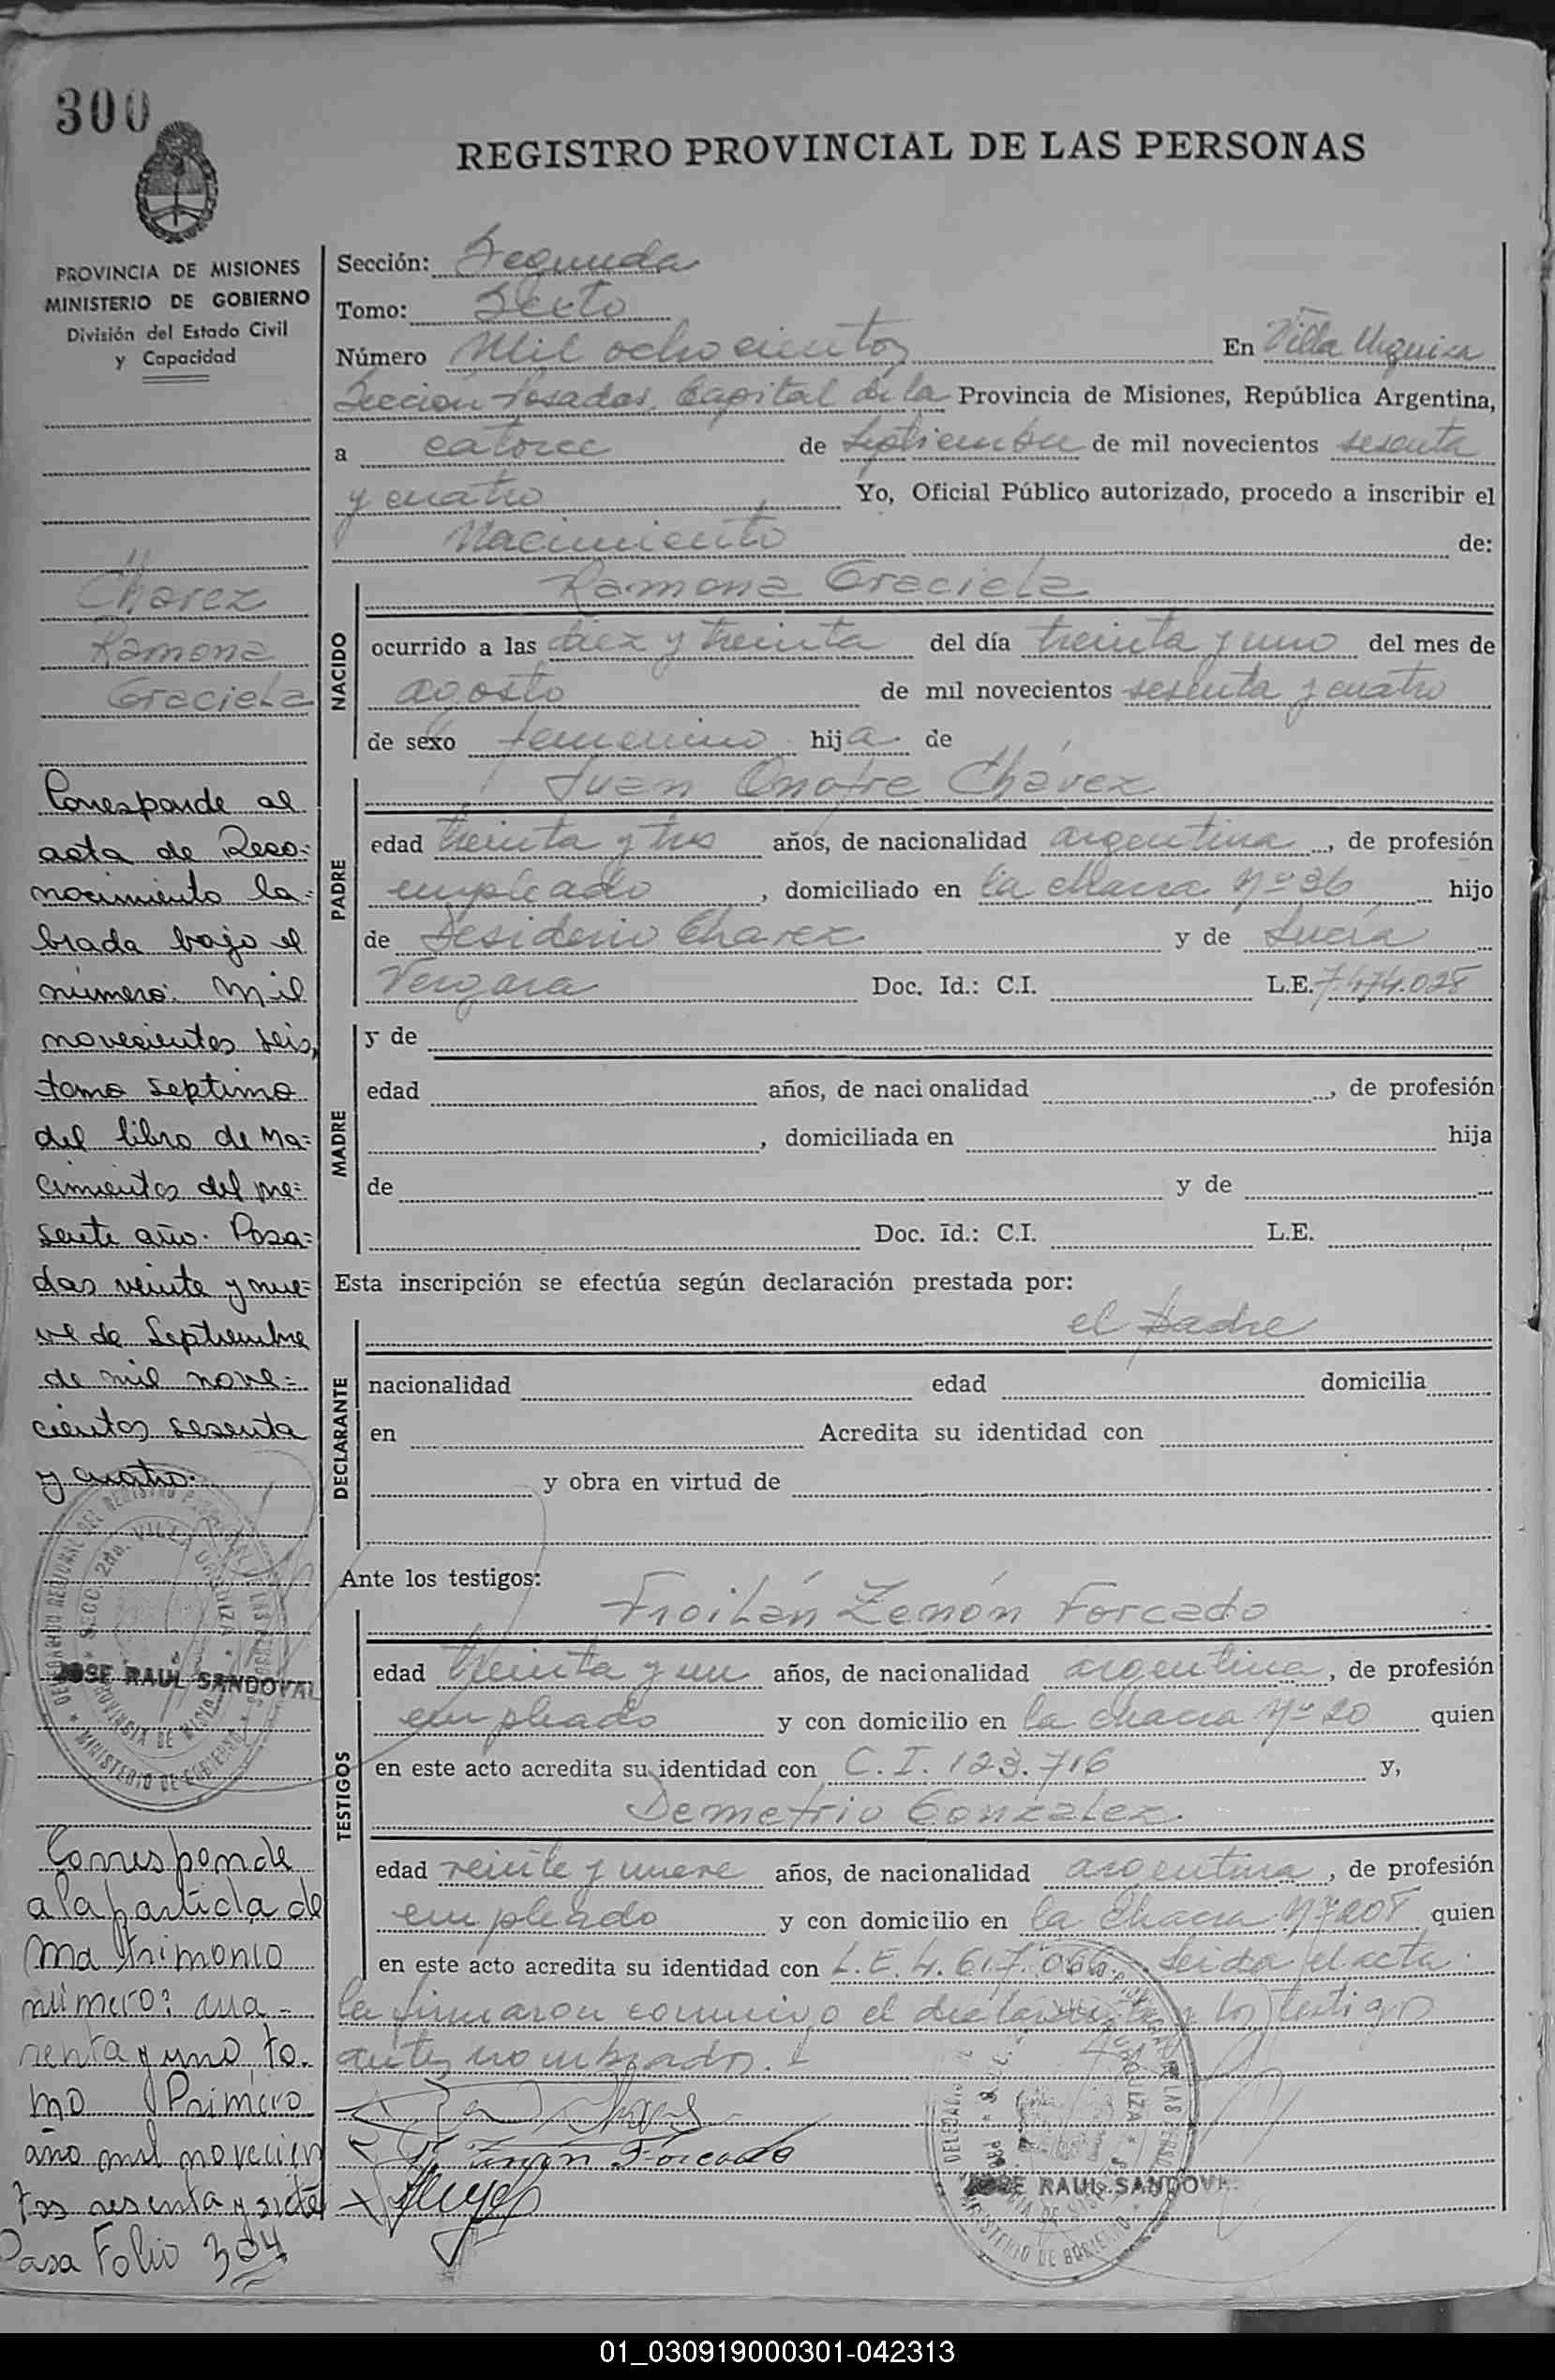 300
REGISTRO PROVINCIAL DE LAS PERSONAS
PROVINCIA DE MISIONES
MINISTERIO DE GOBIERNO
División del Estado Civil
y Capacidad
Chavez
Ramona
Graciela
Corresponde al
acta de Reco=
nocimiento la=
brada bajo el
número: mil
novecientos seis,
tomo septimo
del libro de Na=
cimientos del pre=
sente año. Posa=
das veinte y nue=
ve de Septiembre
de mil nove=
cientos sesenta
y cuatro.
JOSE RAUL SANDOVAL
Corresponde
a la partida de
Matrimonio
número: cua=
renta y uno to.
mo Primero
año mil novecien
tos sesenta y siete
Pasa Folio 304
Sección: Segunda
Tomo: Sexto
Número Mil ochocientos En Villa Urquiza
Sección Posadas, Capital de la Provincia de Misiones, República Argentina,
a catorce de Septiembre de mil novecientos sesenta
y cuatro Yo, Oficial Público autorizado, procedo a inscribir el
Nacimiento de:
NACIDO
Ramona Graciela
ocurrido a las diez y treinta del día treinta y uno del mes de
agosto de mil novecientos sesenta y cuatro
de sexo femenino hija de
PADRE
Juan Onofre Chávez
edad treinta y tres años, de nacionalidad argentina, de profesión
empleado, domiciliado en la chacra Nº 36 hijo
de Desiderio Chavez y de Lucía
Vergara Doc. Id.: C.I. L.E. 7.474.028
MADRE
y de
edad años, de nacionalidad , de profesión
, domiciliada en hija
de y de
Doc. Id.: C.I. L.E.
Esta inscripción se efectúa según declaración prestada por:
DECLARANTE
el padre
nacionalidad edad domicilia
en Acredita su identidad con
y obra en virtud de
Ante los testigos:
TESTIGOS
Froilán Zenón Forcado
edad treinta y un años, de nacionalidad argentina, de profesión
empleado y con domicilio en la chacra Nº 20 quien
en este acto acredita su identidad con C.I. 123.716 y,
Demetrio González
edad veinte y nueve años, de nacionalidad argentina, de profesión
empleado y con domicilio en la chacra Nº 208 quien
en este acto acredita su identidad con L.E. 4.617.066. Leida el acta
la firmaron conmigo el declarante y los testigos
antes nombrados.
Zenón Forcado
JOSE RAUL SANDOVAL
01_030919000301-042313